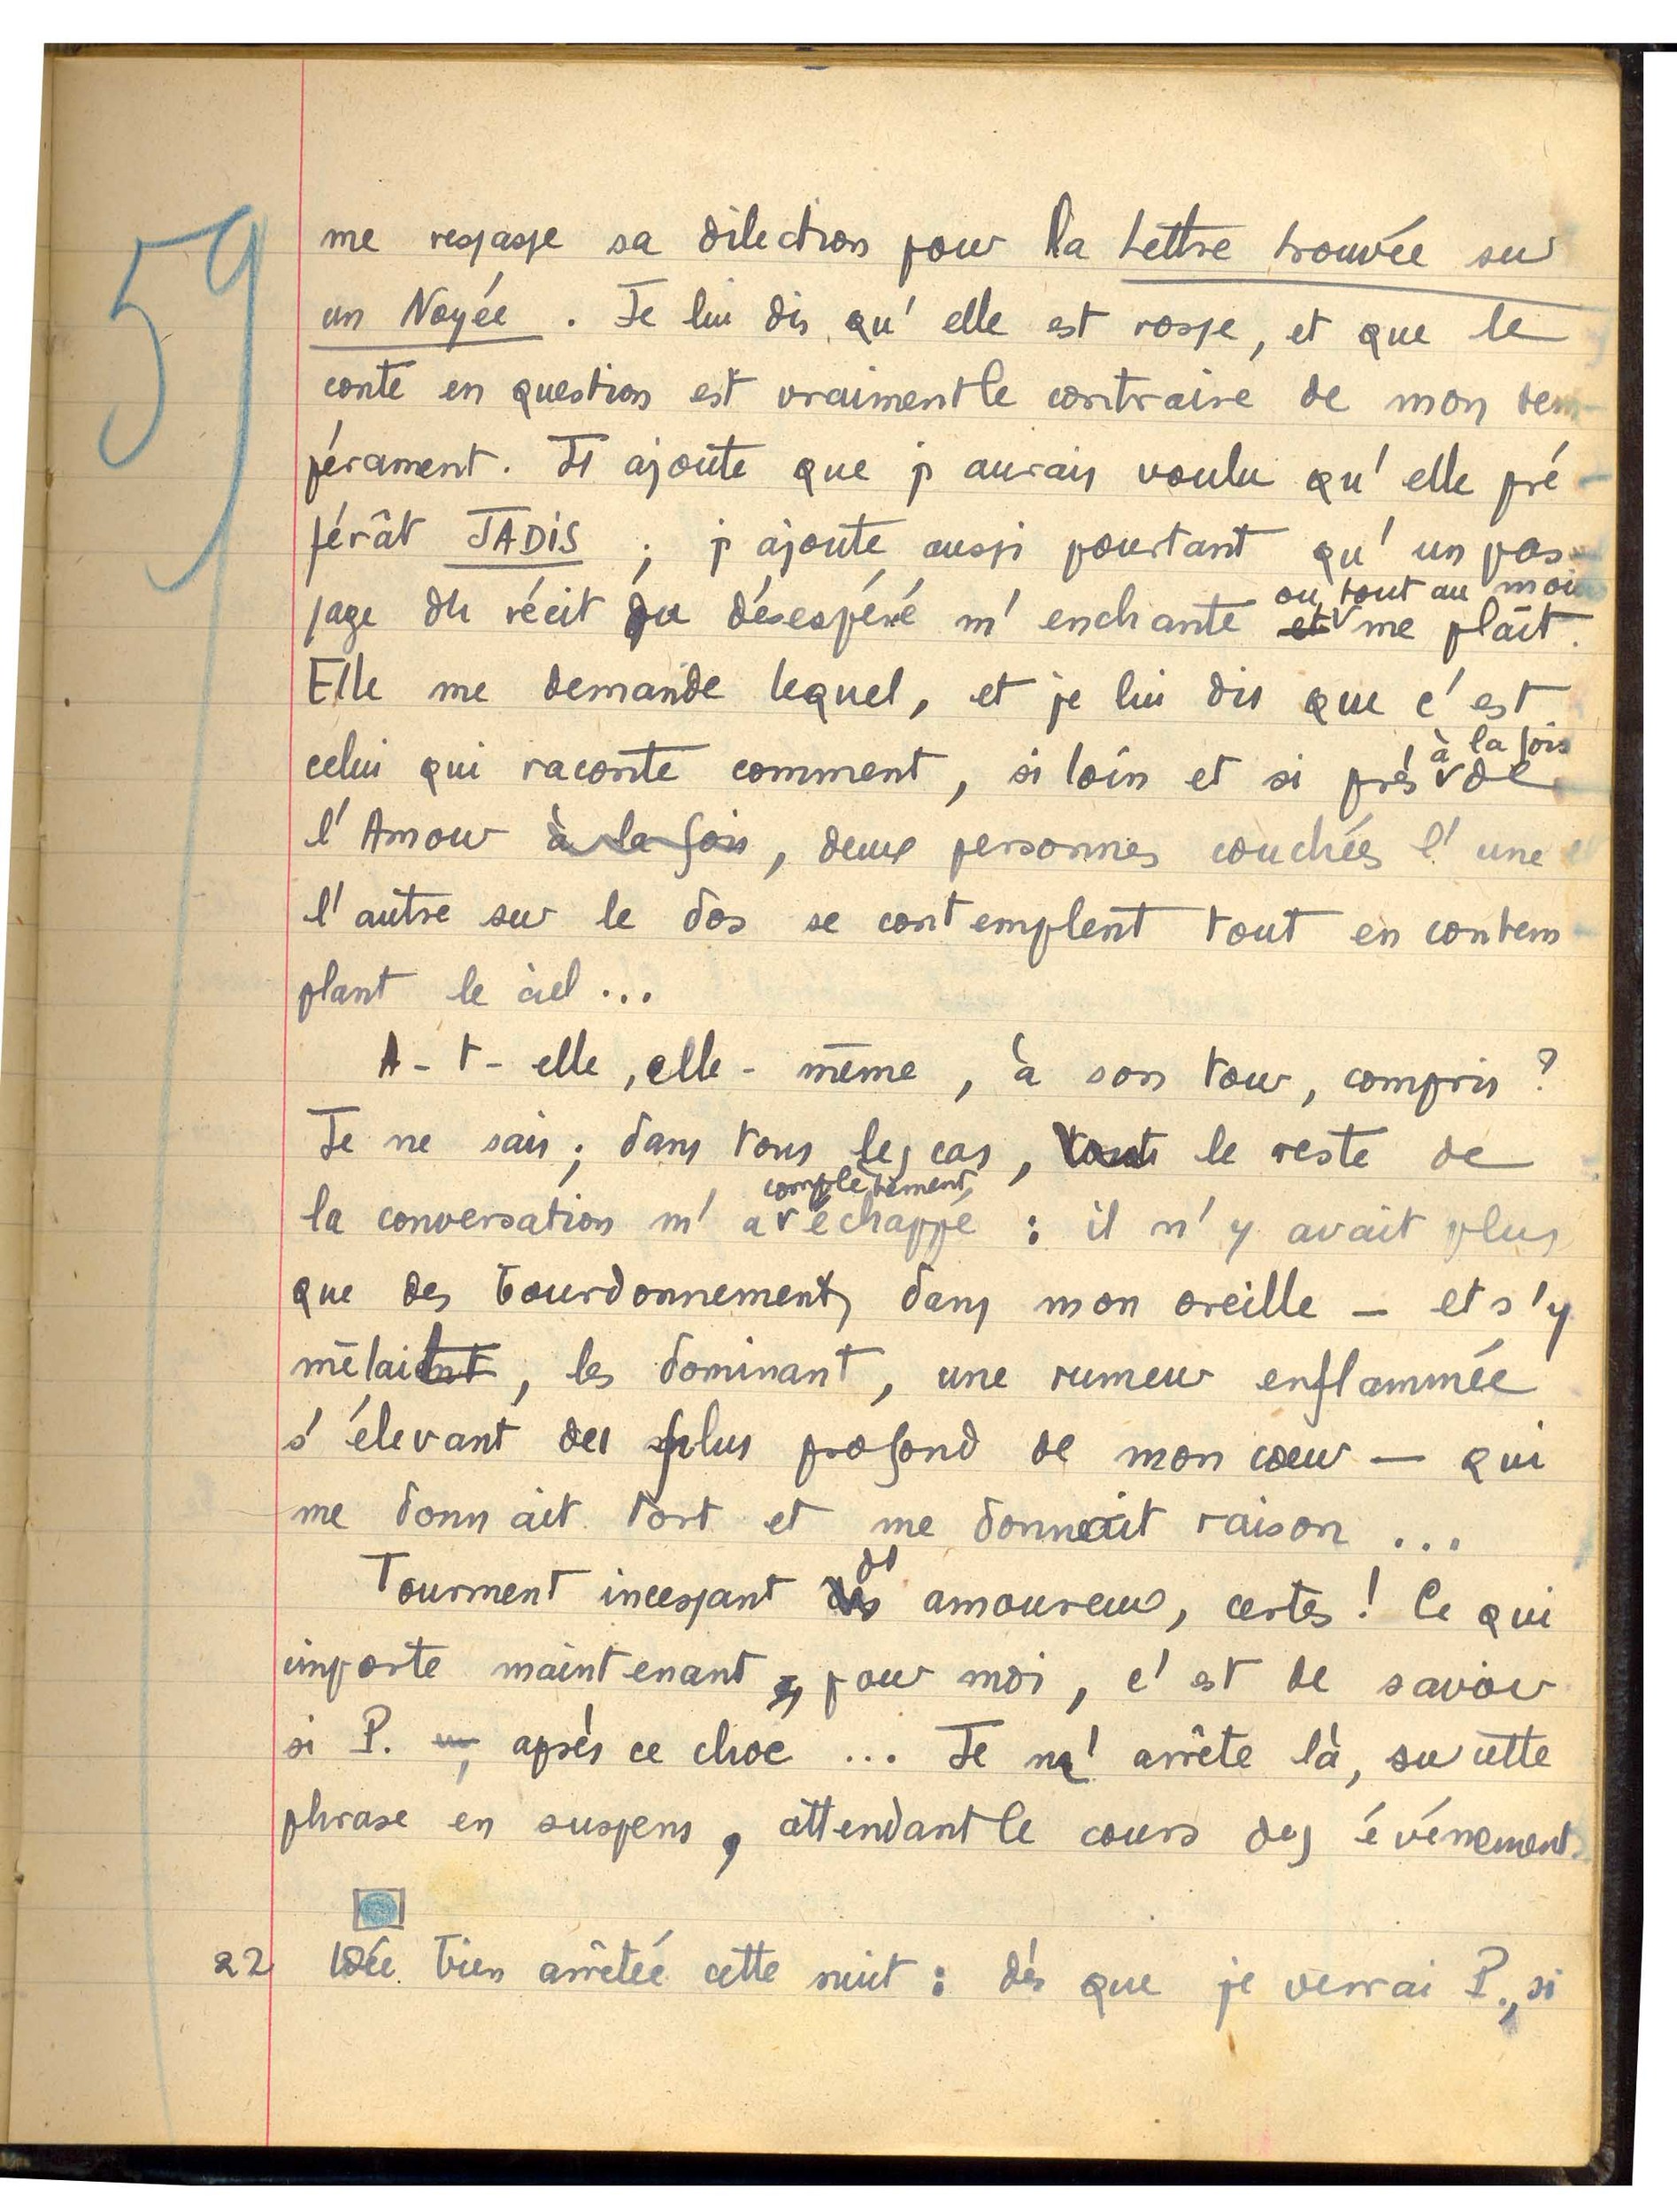 59
me ressasse sa dilection pour la Lettre trouvée sur
un Noyée . Je lui dis qu' elle est rosse, et que le
conte en question est vraiment le contraire de mon tem-
pérament. J' ajoute que j' aurais voulu qu' elle pré-
férât JADIS ; j' ajoute aussi pourtant qu' un pas-
ou tout au moins
sage du récit du désespéré m' enchante et me plaît.
Elle me demande lequel, et je lui dis que c' est
à la fois
celui qui raconte comment, si loin et si près de
l' Amour à la fois, deux personnes couchées l' une et
l' autre sur le dos se contemplent tout en contem-
plant le ciel ...
A - t - elle, elle - même, à son tour, compris ?
Je ne sais ; dans tous les cas, tout le reste de
complètement
la conversation m' a échappé : il n' y avait plus
que des bourdonnements dans mon oreille — et s' y
mêlaient, les dominant, une rumeur enflammée
s' élevant du plus profond de mon cœur — qui
me donnait tort et me donnait raison ...
de
Tourment incessant des amoureux, certes ! Ce qui
importe maintenant, pour moi, c' est de savoir
si P. après ce choc ... Je m' arrête là, sur cette
phrase en suspens, attendant le cours des événements.
22 Idée bien arrêtée cette nuit : dès que je verrai P., si